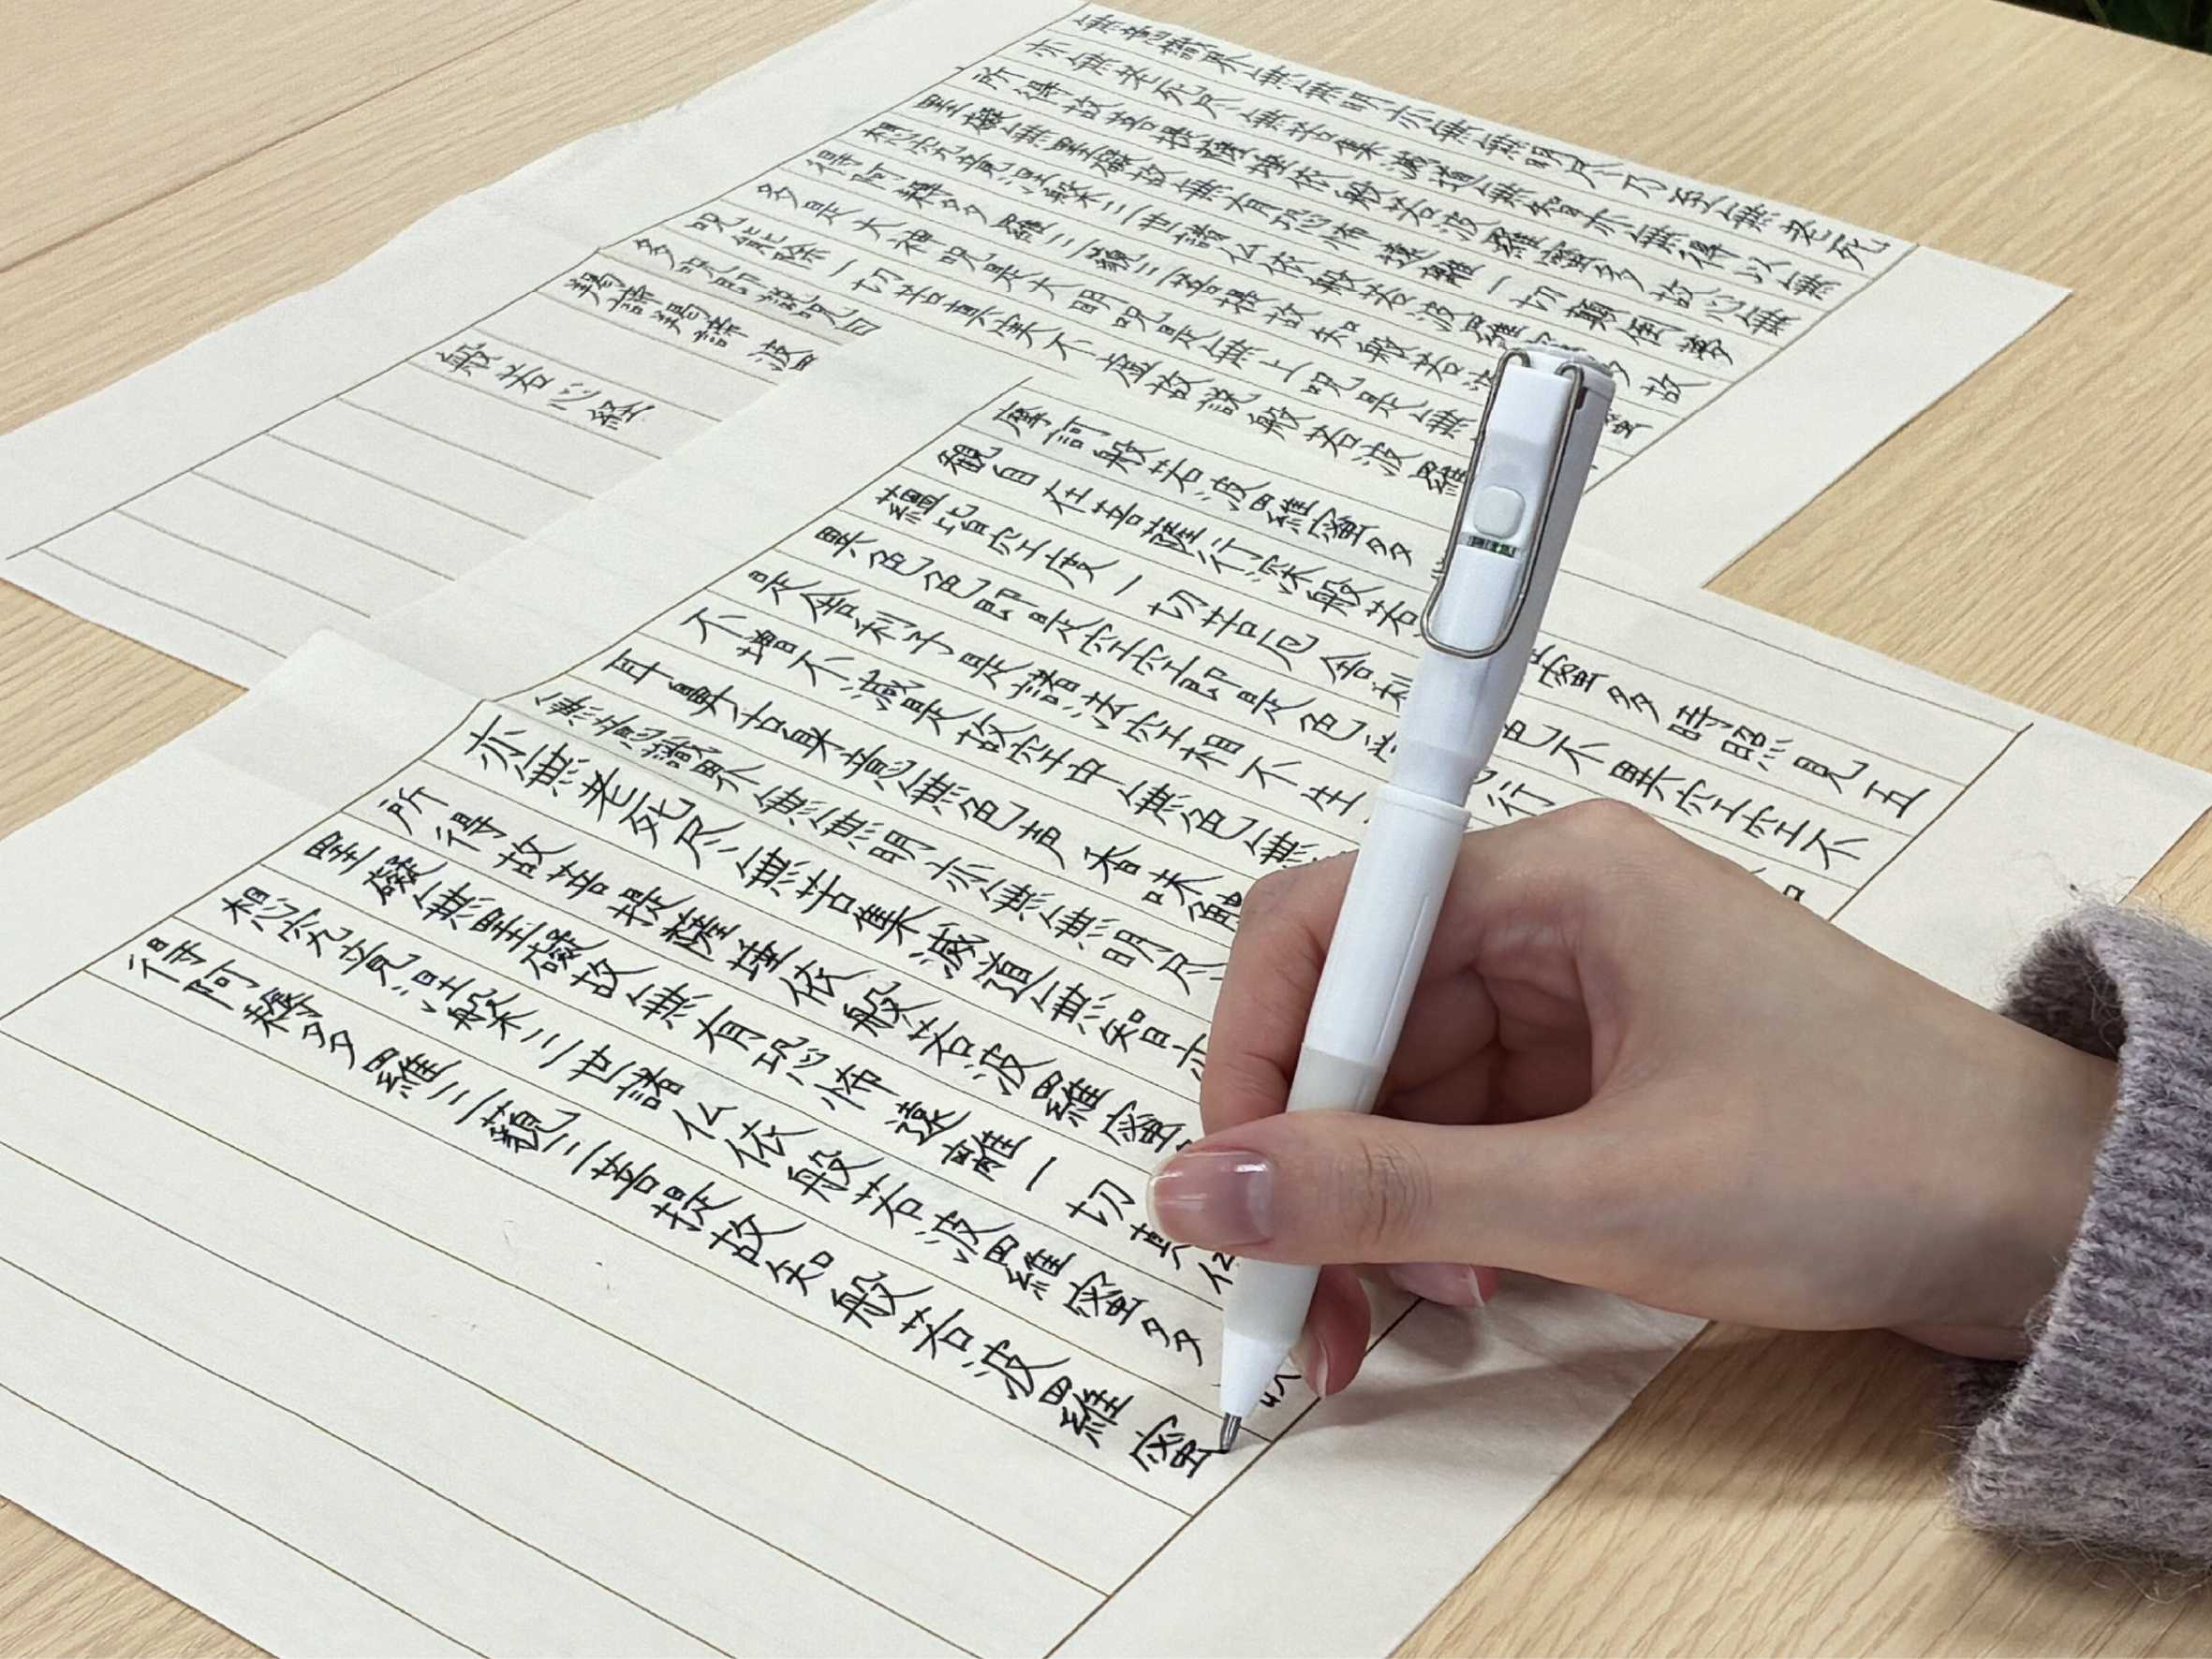 無意識界無無明亦無無明尽乃至無老死
亦無老死尽無苦集滅道無智亦無得以無
所得故菩提薩埵依般若波羅蜜多故心無
罣礙無罣礙故無有恐怖遠離一切顛倒夢
想究竟涅槃三世諸仏依般若波羅多故
得阿耨多羅三藐三菩提故知般若波蜜
多是大神呪是大明呪是無上呪是無
呪能除一切苦真実不虚故説般若波羅
多呪即説呪曰
羯諦羯諦波
般若心経
摩訶般若波羅蜜多
観自在菩薩行深般若蜜多時照見五
蘊皆空度一切苦厄舎利色不異空空不
異色色即是空空即是色受行
是舎利子是諸法空相不生
不増不減是故空中無色無
耳鼻舌身意無色声香味触
無意識界無無明亦無無明尽
亦無老死尽無苦集滅道無智亦
所得故菩提薩埵依般若波羅蜜
罣礙無罣礙故無有恐怖遠離一切
想究竟涅槃三世諸仏依般若波羅蜜多
得阿耨多羅三藐三菩提故知般若波羅蜜